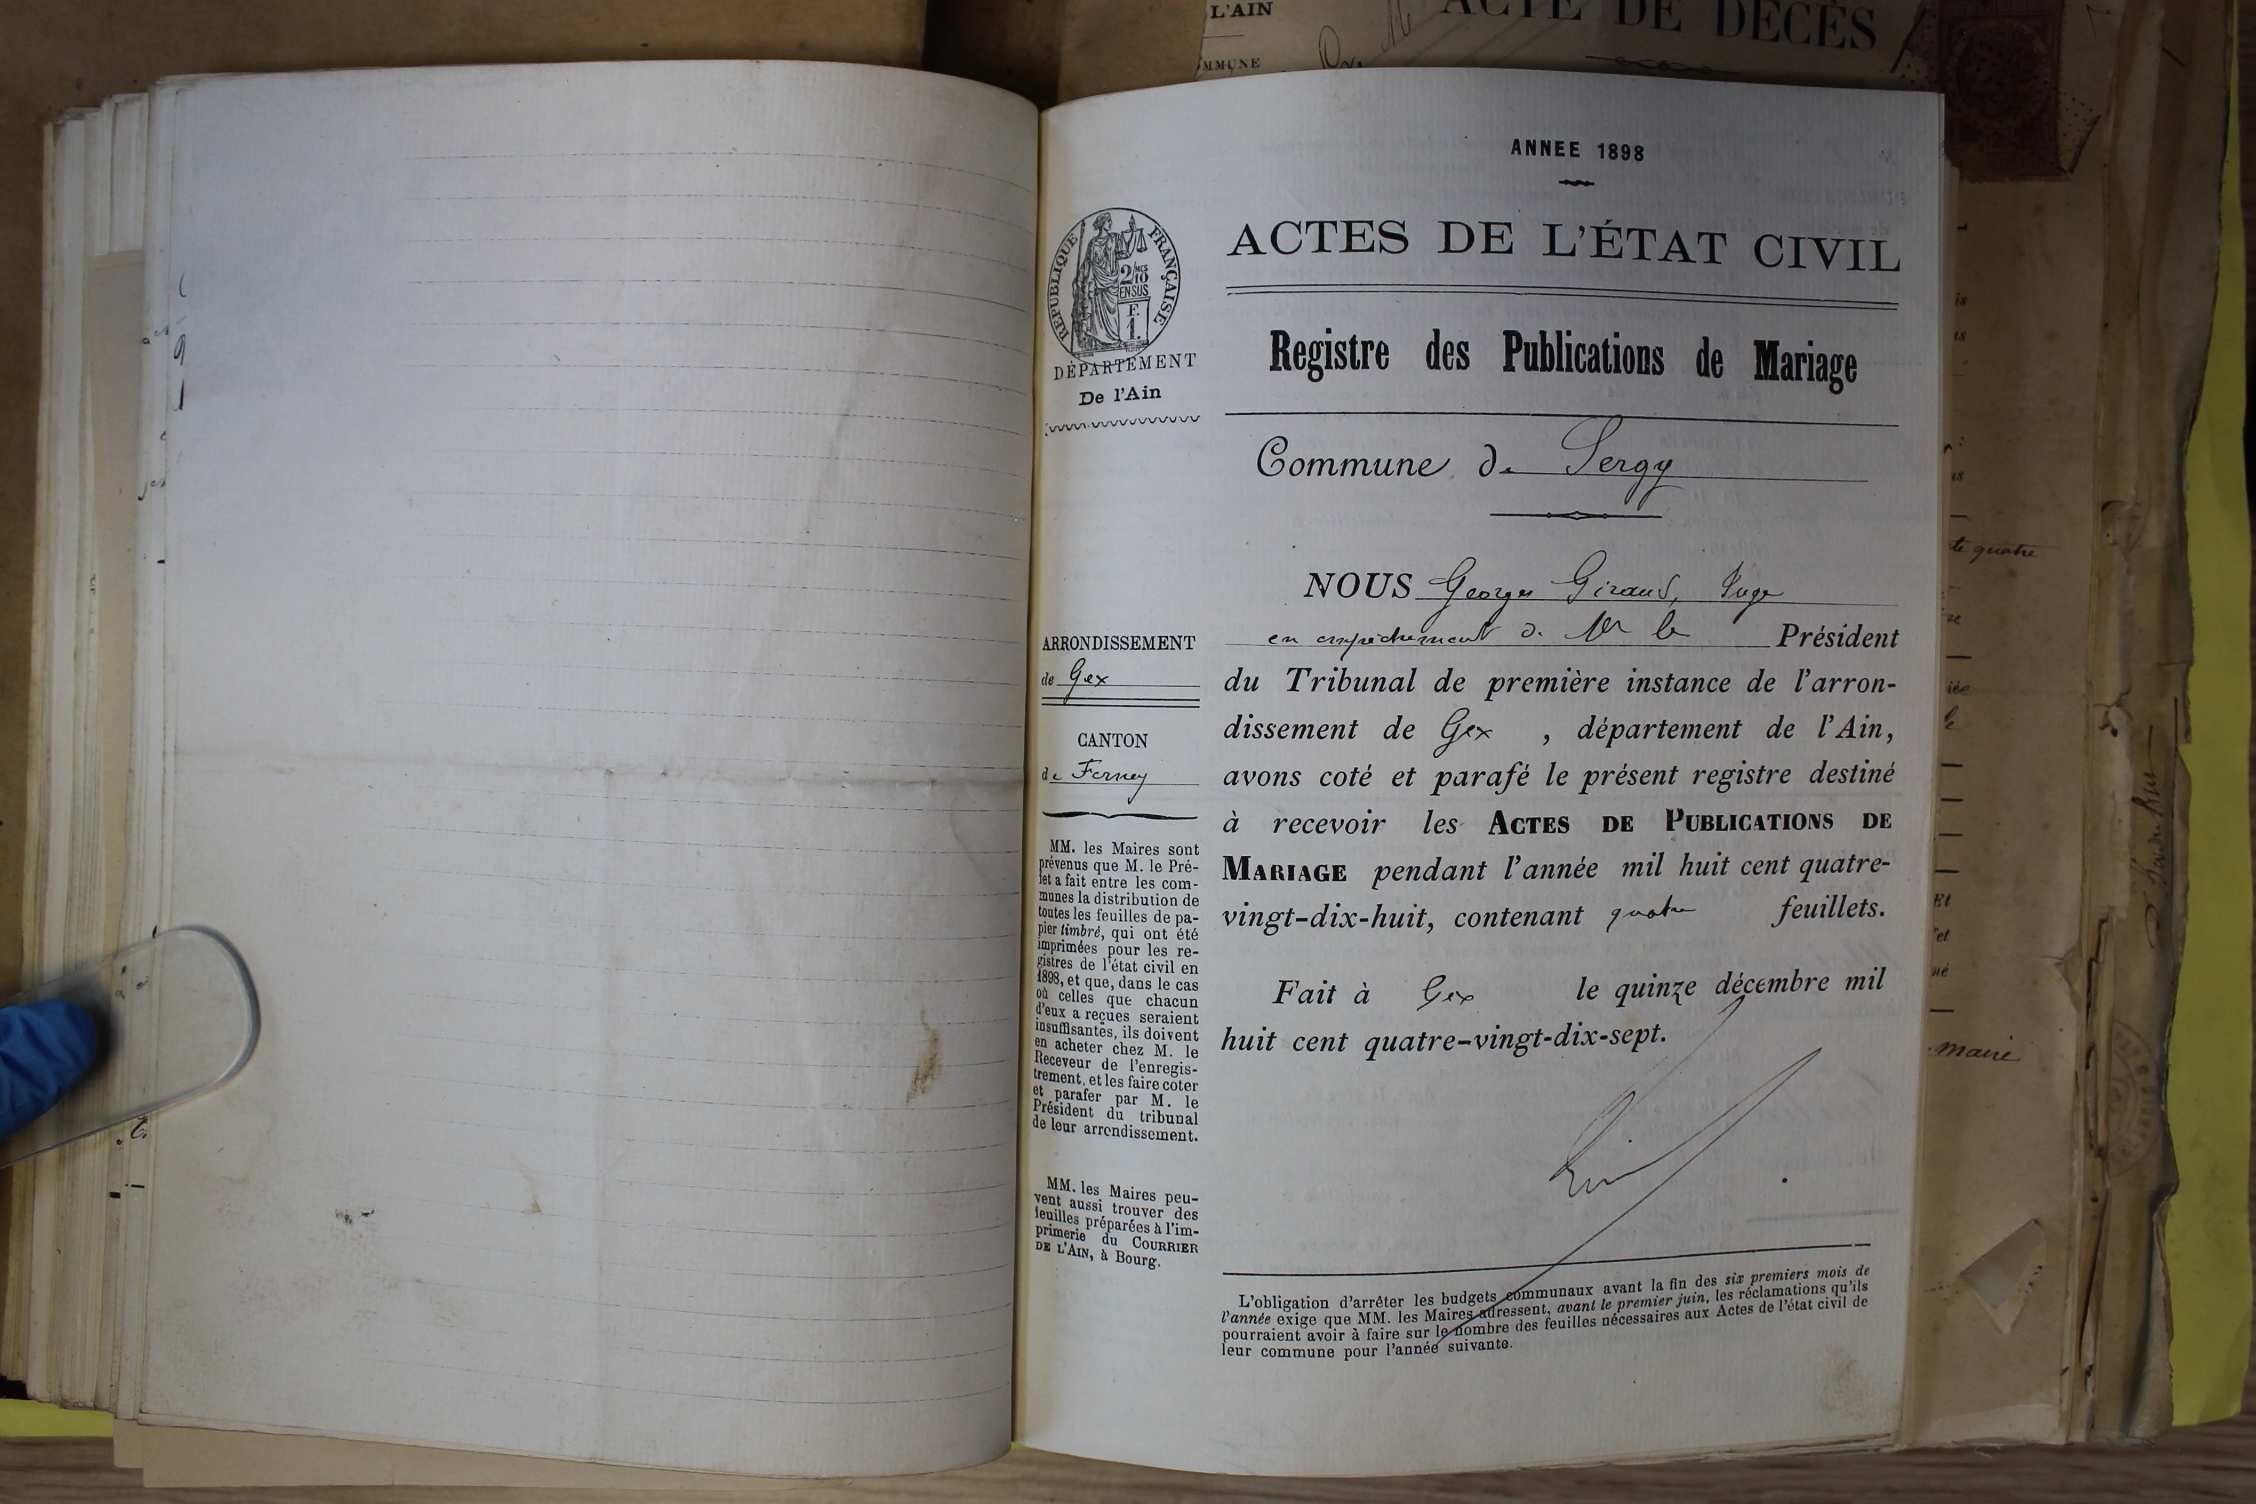 L'AIN
ACTE DE DÉCÈS
MMUNE
ANNEE 1898
RÉPUBLIQUE FRANÇAISE
2/10 MES
EN SUS
F.
1.
DÉPARTEMENT
De l'Ain
ACTES DE L'ÉTAT CIVIL
Registre des Publications de Mariage
Commune de Sergy
NOUS Georges Giraud, Juge
en empêchement de Mr le Président
du Tribunal de première instance de l'arron-
dissement de Gex , département de l'Ain,
avons coté et parafé le présent registre destiné
à recevoir les ACTES DE PUBLICATIONS DE
MARIAGE pendant l'année mil huit cent quatre-
vingt-dix-huit, contenant quatre feuillets.
Fait à Gex le quinze décembre mil
huit cent quatre-vingt-dix-sept.
ARRONDISSEMENT
de Gex
CANTON
de Ferney
MM. les Maires sont
prévenus que M. le Pré-
fet a fait entre les com-
munes la distribution de
toutes les feuilles de pa-
pier timbré, qui ont été
imprimées pour les re-
gistres de l'état civil en
1898, et que, dans le cas
où celles que chacun
d'eux a reçues seraient
insuffisantes, ils doivent
en acheter chez M. le
Receveur de l'enregis-
trement, et les faire coter
et parafer par M. le
Président du tribunal
de leur arrondissement.
MM. les Maires peu-
vent aussi trouver des
feuilles préparées à l'im-
primerie du COURRIER
DE L'AIN, à Bourg.
L'obligation d'arrêter les budgets communaux avant la fin des six premiers mois de
l'année exige que MM. les Maires adressent, avant le premier juin, les réclamations qu'ils
pourraient avoir à faire sur le nombre des feuilles nécessaires aux Actes de l'état civil de
leur commune pour l'année suivante.
te quatre
maire